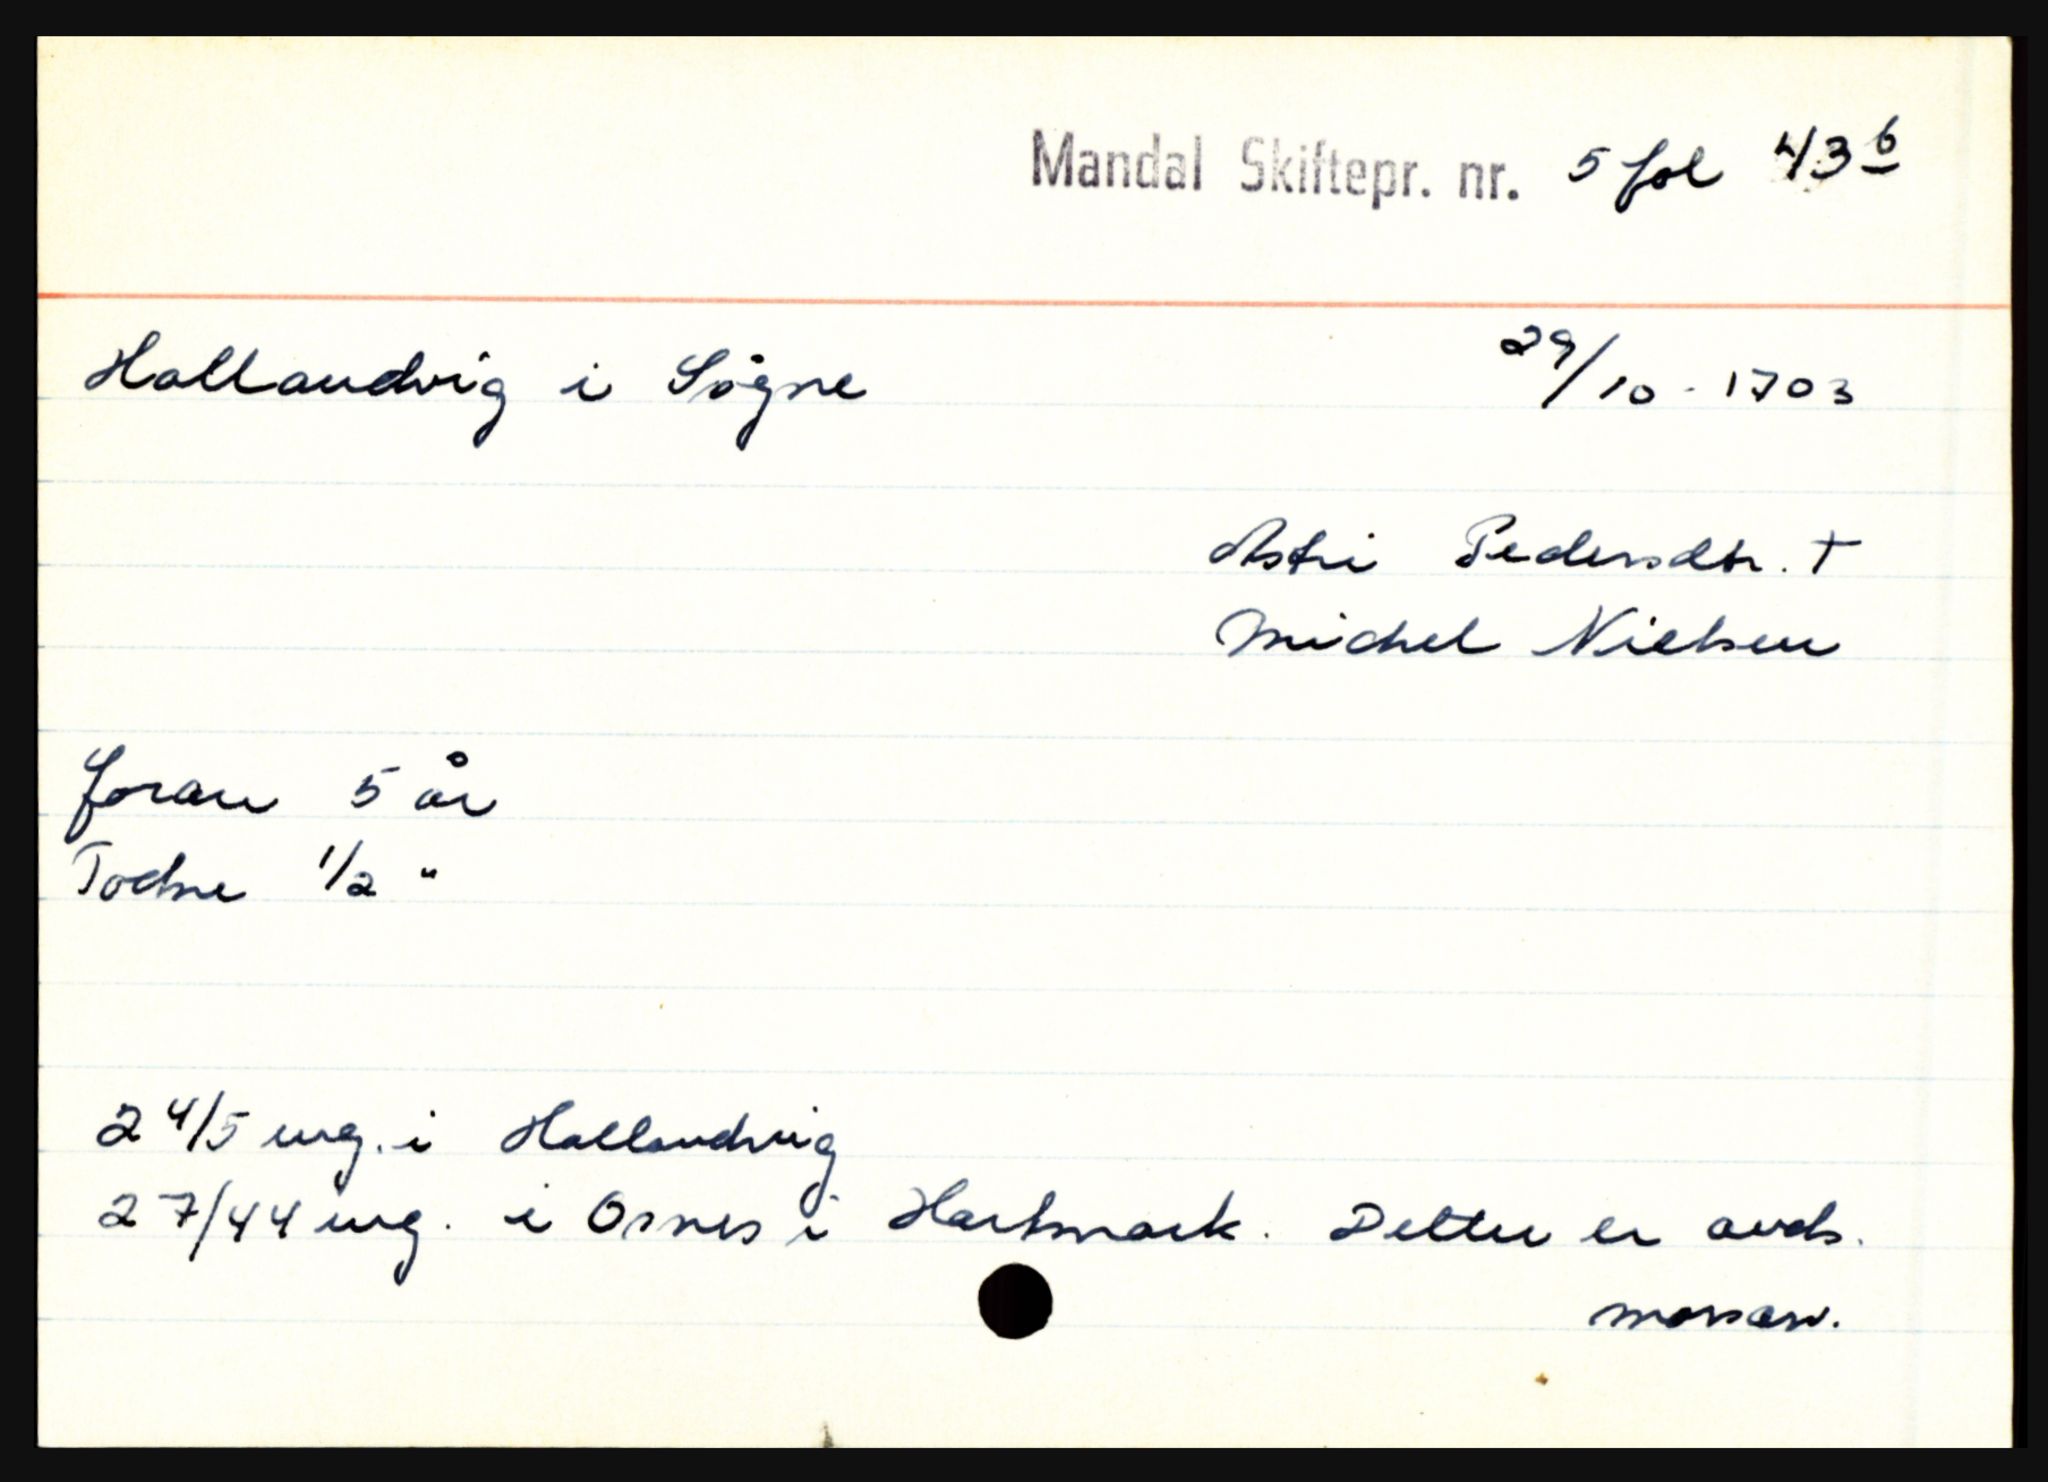 Mandal Skiftepr. nr. 5 fol 43 b
Hallandvig i Søgne 29/10 - 1703
Astri Pedersdtr. †
Michel Nielsen
Joran 5 år
Todne 1/2 "
2 4/5 eng. i Hallandvig
27/44 eng. i Osnes i Hartmark. Dette er avds.
morsarv.